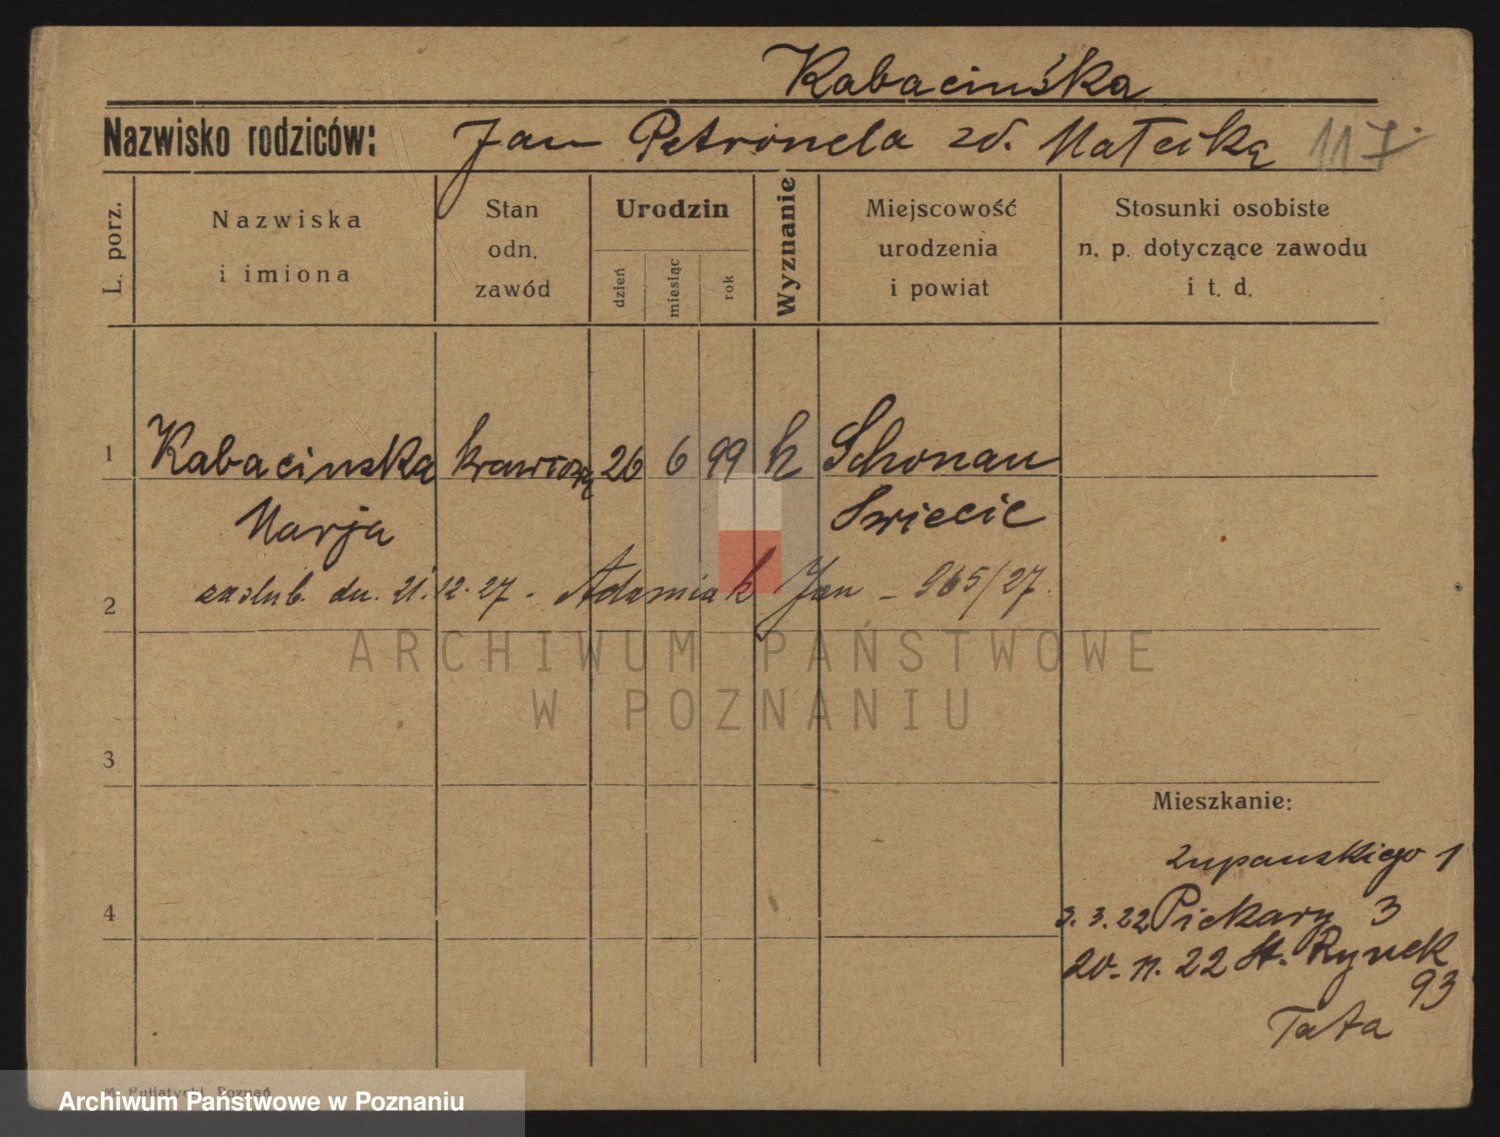 Kabacińska
Nazwisko rodziców: Jan Petronela zd. Małecką 117.
L. porz.
Nazwiska
i imiona
Stan
odn.
zawód
Urodzin
dzień
miesiąc
rok
Wyznanie
Miejscowość
urodzenia
i powiat
Stosunki osobiste
n. p. dotyczące zawodu
i t. d.
1 Kabacinska 26 6 99 k Schonau
Marja Swiecie
2 zaślub. dn. 21.12.27. Adamiak Jan - 965/27.
ARCHIWUM PAŃSTWOWE
W POZNANIU
3
Mieszkanie:
Zupanskiego 1
4 3.3.22 Piekary 3
20.11.22 St. Rynek
93
Tata
M. Putiatycki, Poznań
Archiwum Państwowe w Poznaniu